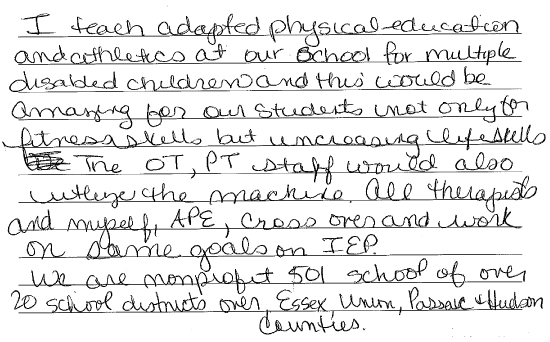 I teach adapted physical education
and athletics at our school for multiple
disabled children and this would be
amazing for our students not only for
fitness skills but increasing life skills
The OT, PT staff would also
utilize the machine. All therapists
and myself, APE, cross over and work
on same goals on IEP.
We are nonprofit 501 school of over
20 school districts over Essex, Union, Passaic & Hudson
Counties.